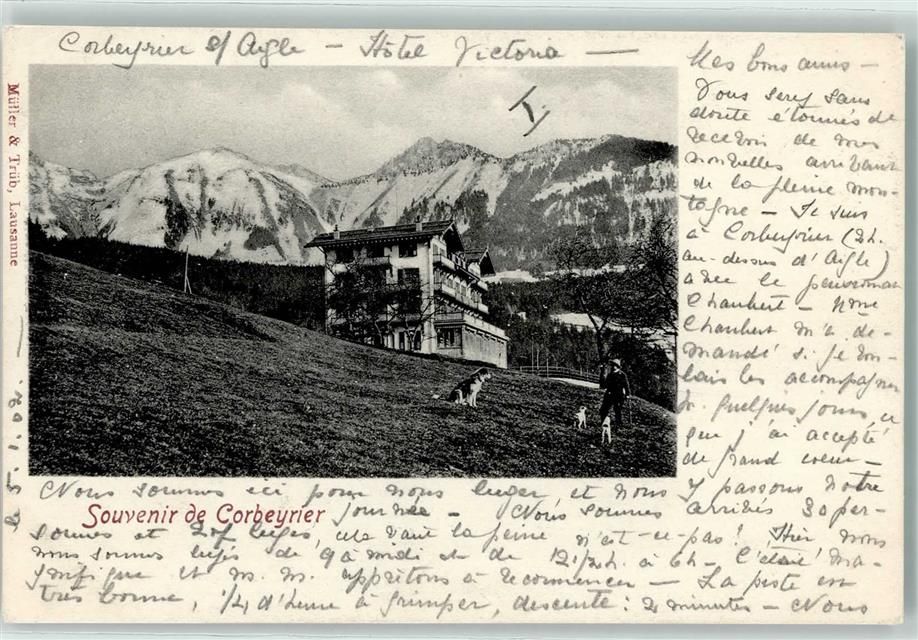 Corbeyrier s/ Aigle – Hôtel Victoria –
Müller & Trüb, Lausanne
5. 1. 02.
Mes bons amis –
Vous serez sans
doute étonnés de
recevoir de mes
nouvelles arrivant
de la pleine mon-
tagne – Je suis
à Corbeyrier (2h.
au-dessus d'Aigle)
avec le pensionnat
Chaubert – Mme
Chaubert m'a de-
mandé si je vou-
lais les accompagner
pr. quelques jours, ce
que j'ai accepté
de grand cœur –
Nous sommes ici pour nous luger, et nous y passons notre
Souvenir de Corbeyrier
journée – Nous sommes arrivés 30 per-
sonnes et 27 luges, cela vaut la peine n'est-ce-pas! Hier nous
nous sommes lugés de 9 à midi et de 12 1/2 h. à 6h – C'était ma-
gnifique et ns. ns. apprêtons à recommencer – La piste est
très bonne, 1/4 d'heure à grimper, descente: 2 minutes – Nous